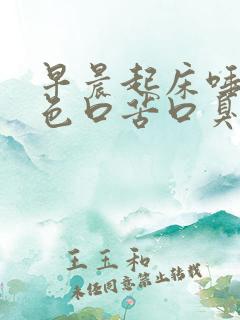 早晨起床唾
色口苦口臭
王玉和
未经同意禁止转载